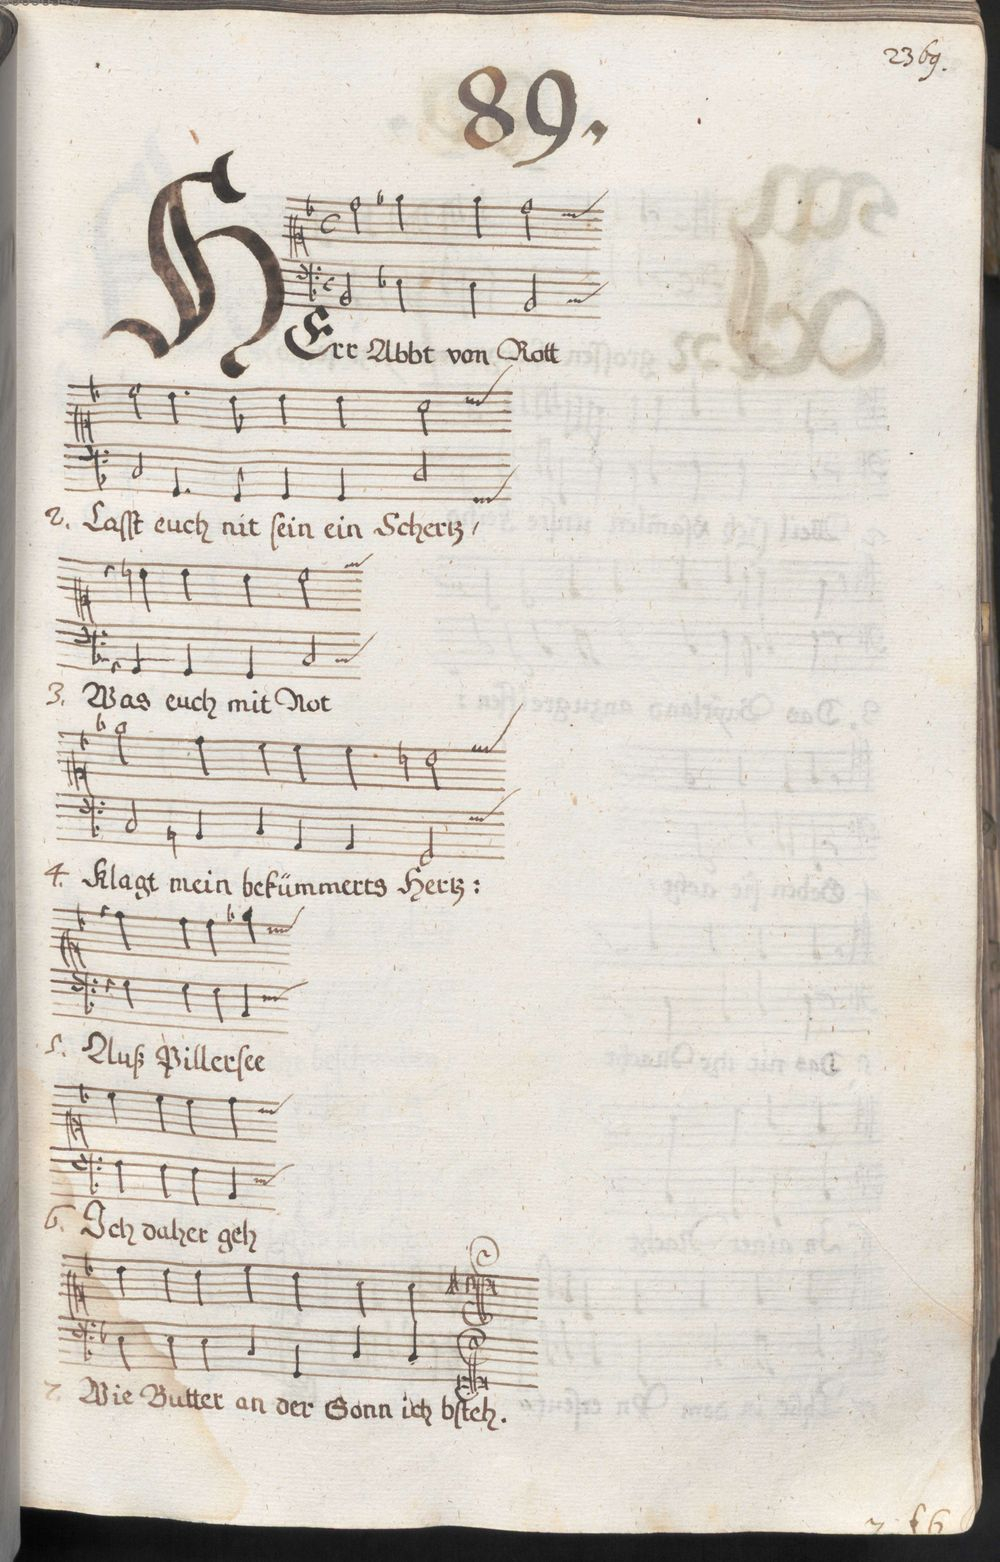 2369.
89.
HErr Abbt von Rott
2. Lasst euch nit sein ein Schertz,
3. Was euch mit Not
4. Klagt mein bekümmerts Hertz:
5. Auß Pillersee
6. Ich daher geh
7. Wie Butter an der Sonn ich bsteh.